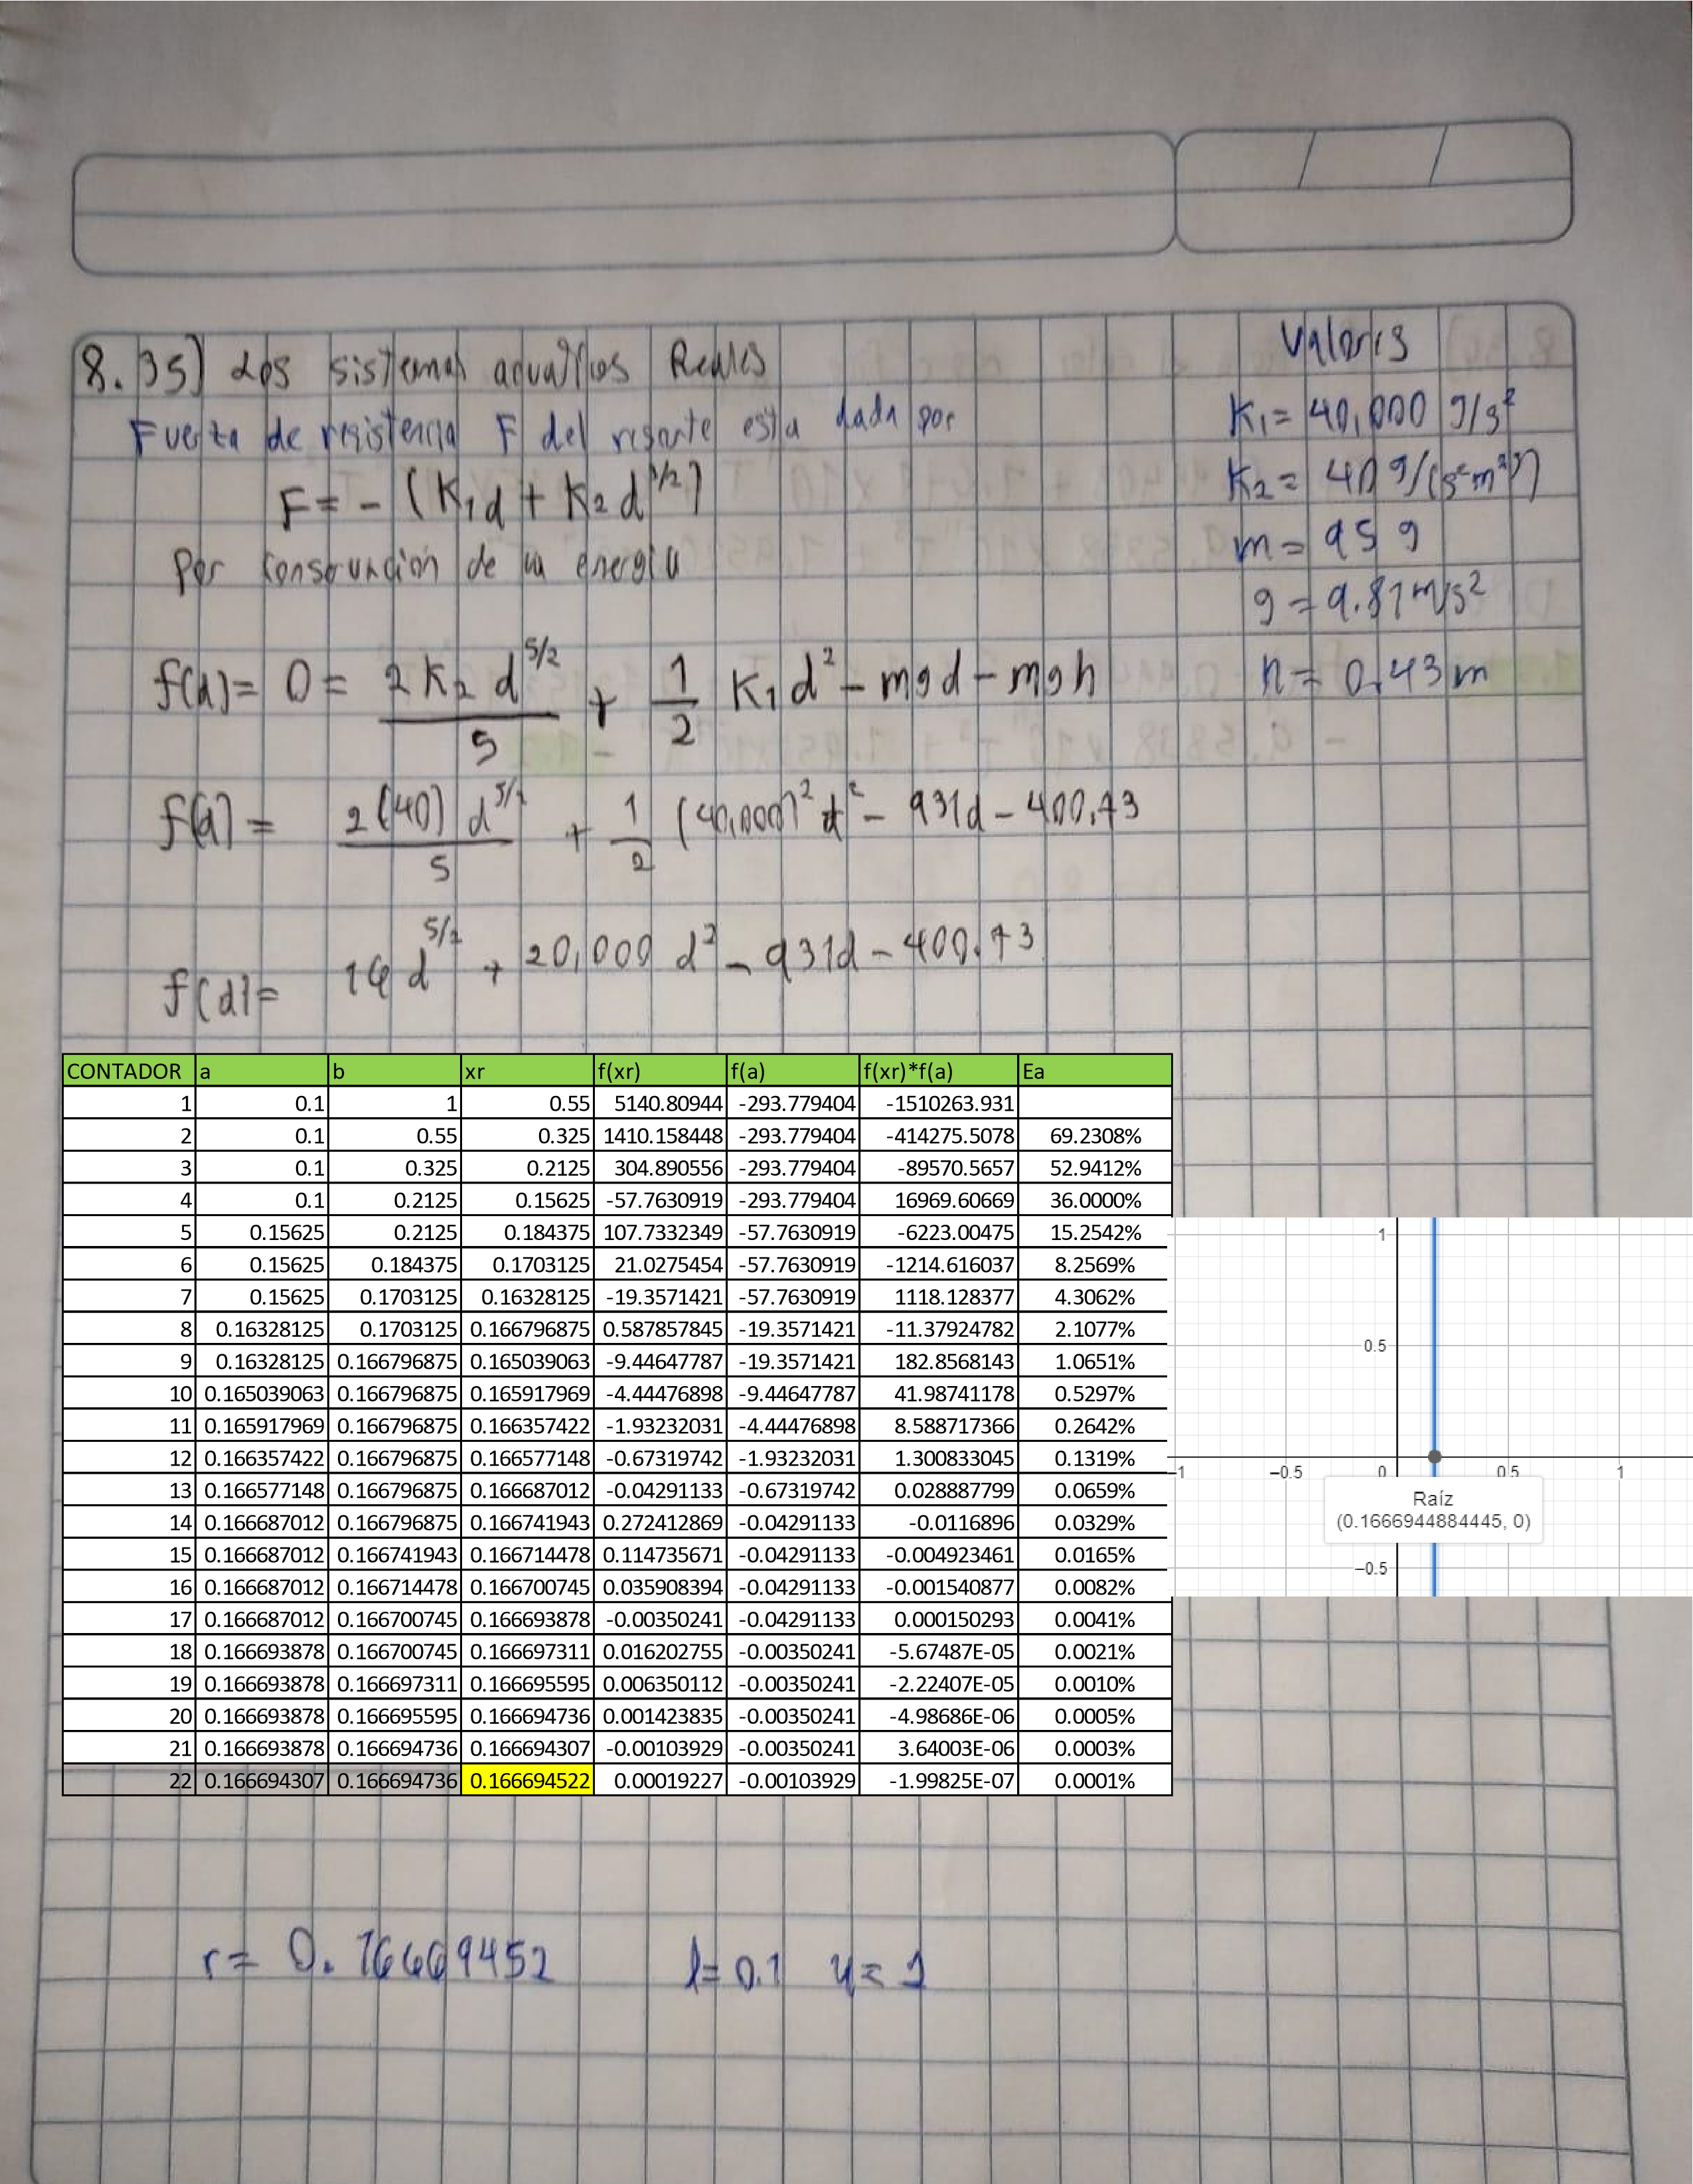 8.35) Los sistemas acuaticos Reales
Fuerza de resistencia F del resorte esta dada por
F = - (K₁d + K₂d^3/2)
Por conservacion de la energia
f(d) = 0 = 2K₂d^5/2 / 5 + 1/2 K₁d² - mgd - mgh
f(d) = 2(40)d^5/2 / 5 + 1/2 (40,000)² d² - 931d - 400.73
f(d) = 16d^5/2 + 20,000d² - 931d - 400.73
Valores
K₁ = 40,000 g/s²
K₂ = 40 g/(s²m^.5)
m = 95 g
g = 9.81 m/s²
h = 0.43 m
CONTADOR a b xr f(xr) f(a) f(xr)*f(a) Ea
1 0.1 1 0.55 5140.80944 -293.779404 -1510263.931
2 0.1 0.55 0.325 1410.158448 -293.779404 -414275.5078 69.2308%
3 0.1 0.325 0.2125 304.890556 -293.779404 -89570.5657 52.9412%
4 0.1 0.2125 0.15625 -57.7630919 -293.779404 16969.60669 36.0000%
5 0.15625 0.2125 0.184375 107.7332349 -57.7630919 -6223.00475 15.2542%
6 0.15625 0.184375 0.1703125 21.0275454 -57.7630919 -1214.616037 8.2569%
7 0.15625 0.1703125 0.16328125 -19.3571421 -57.7630919 1118.128377 4.3062%
8 0.16328125 0.1703125 0.166796875 0.587857845 -19.3571421 -11.37924782 2.1077%
9 0.16328125 0.166796875 0.165039063 -9.44647787 -19.3571421 182.8568143 1.0651%
10 0.165039063 0.166796875 0.165917969 -4.44476898 -9.44647787 41.98741178 0.5297%
11 0.165917969 0.166796875 0.166357422 -1.93232031 -4.44476898 8.588717366 0.2642%
12 0.166357422 0.166796875 0.166577148 -0.67319742 -1.93232031 1.300833045 0.1319%
13 0.166577148 0.166796875 0.166687012 -0.04291133 -0.67319742 0.028887799 0.0659%
14 0.166687012 0.166796875 0.166741943 0.272412869 -0.04291133 -0.0116896 0.0329%
15 0.166687012 0.166741943 0.166714478 0.114735671 -0.04291133 -0.004923461 0.0165%
16 0.166687012 0.166714478 0.166700745 0.035908394 -0.04291133 -0.001540877 0.0082%
17 0.166687012 0.166700745 0.166693878 -0.00350241 -0.04291133 0.000150293 0.0041%
18 0.166693878 0.166700745 0.166697311 0.016202755 -0.00350241 -5.67487E-05 0.0021%
19 0.166693878 0.166697311 0.166695595 0.006350112 -0.00350241 -2.22407E-05 0.0010%
20 0.166693878 0.166695595 0.166694736 0.001423835 -0.00350241 -4.98686E-06 0.0005%
21 0.166693878 0.166694736 0.166694307 -0.00103929 -0.00350241 3.64003E-06 0.0003%
22 0.166694307 0.166694736 0.166694522 0.00019227 -0.00103929 -1.99825E-07 0.0001%
1
0.5
-1 -0.5 0 0.5 1
Raíz
(0.1666944884445, 0)
-0.5
r = 0.16669452 l = 0.1 u = 1